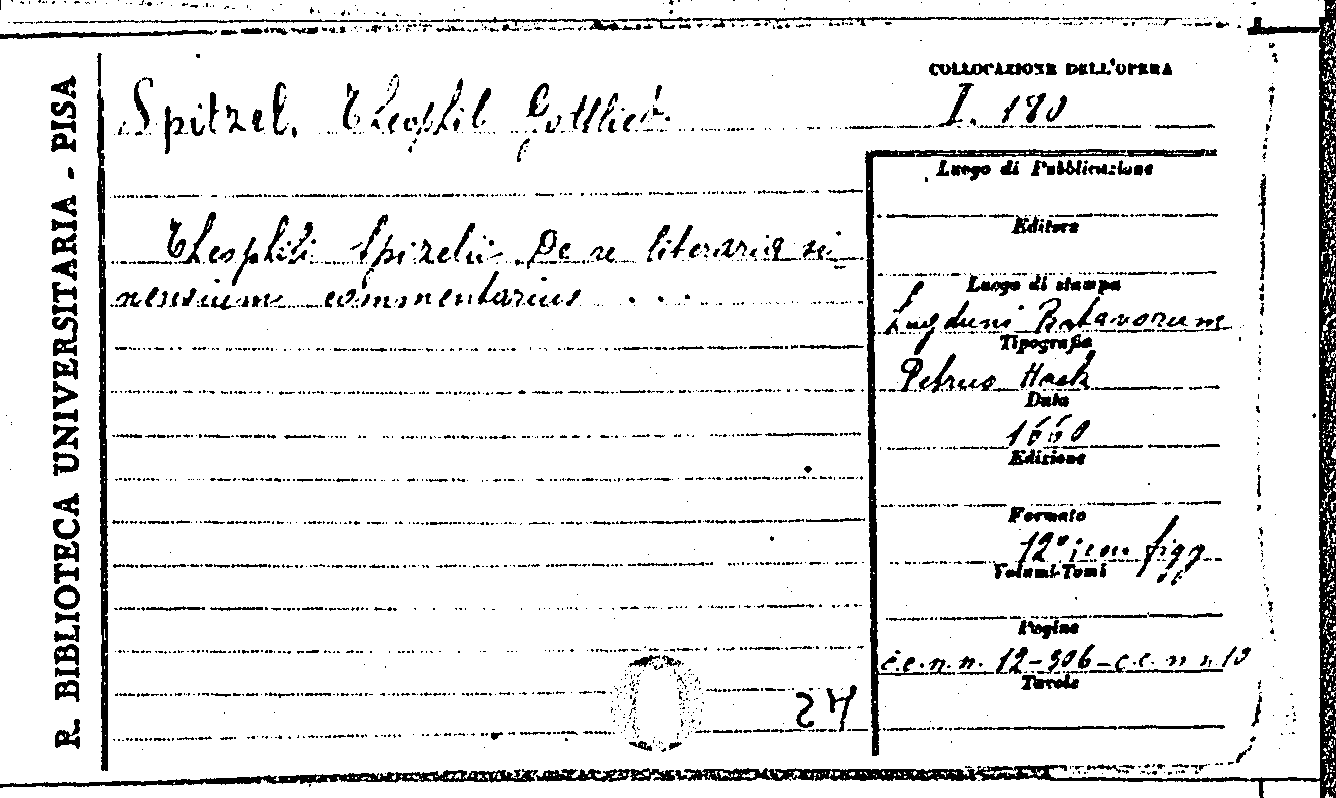 R. BIBLIOTECA UNIVERSITARIA - PISA
COLLOCAZIONE DELL'OPERA
Spitzel, Theophil Gottlieb.
I. 180
Theophili Spizelii De re literaria si-
nensium commentarius ...
Luogo di Pubblicazione
Editore
Luogo di stampa
Lugduni Batavorum
Tipografia
Petrus Hack
Data
1660
Edizione
Formato
12° con figg
Volumi-Tomi
Pagine
c.c.n.n. 12-306-c.c.n n.10
Tavole
24